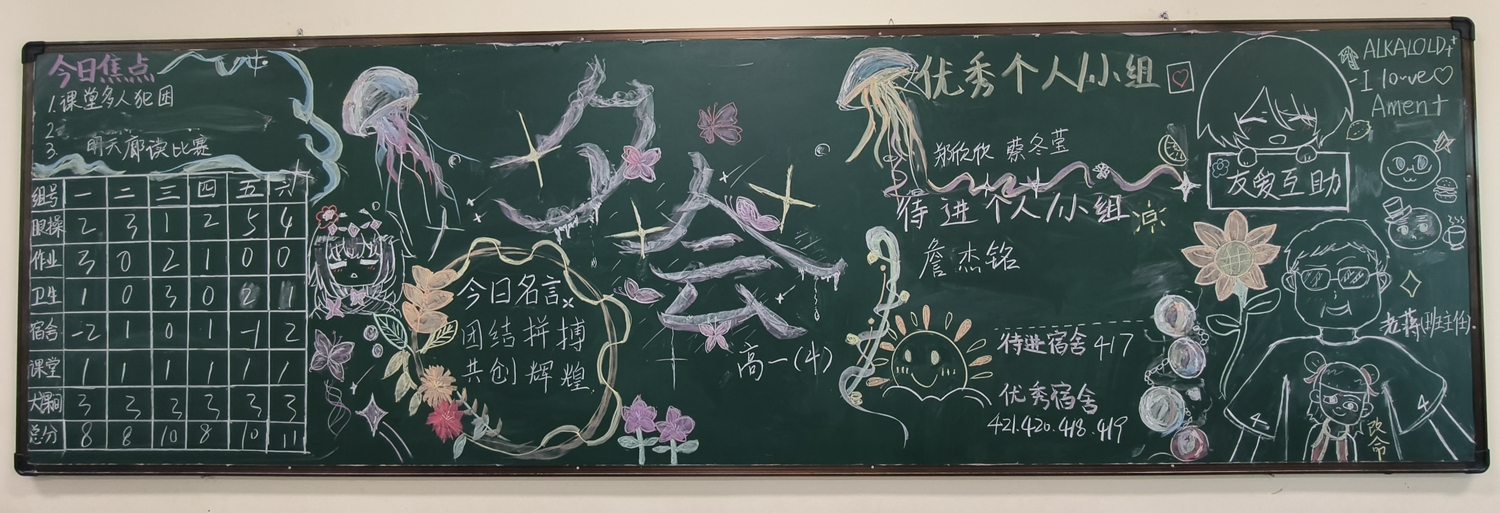 今日焦点
1.课堂多人犯困
2
3. 明天廊读比赛
组号 一 二 三 四 五 六
眼操 2 3 1 2 5 4
作业 3 0 2 1 0 0
卫生 1 0 3 0 2 1
宿舍 -2 1 0 1 -1 2
课堂 1 1 1 1 1 1
大课间 3 3 3 3 3 3
总分 8 8 10 8 10 11
夕会
高一(4)
今日名言
团结拼搏
共创辉煌
优秀个人/小组
郑欣欣 蔡冬莹
待进个人/小组
詹杰铭
待进宿舍417
优秀宿舍
421.420.418.419
友爱互助
ALKALOLD
I love♡
Ament
老蒋(班主任)
4 4
改命